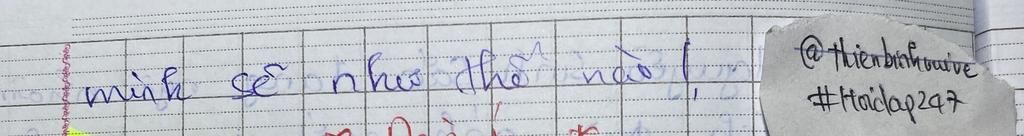 mình sẽ như thế nào!
@thienbinhvuive
#Hoidap247